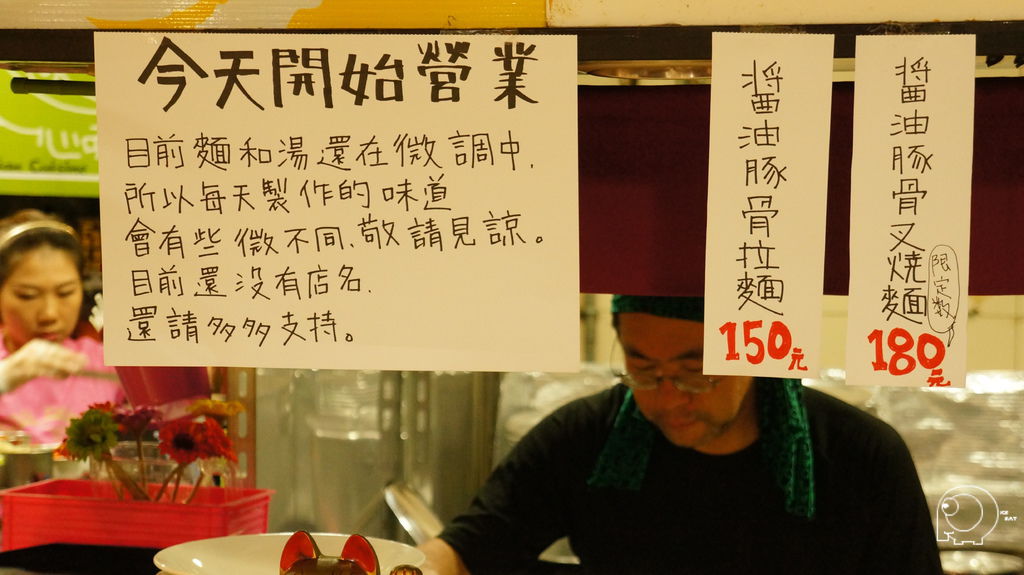 今天開始營業
目前麵和湯還在微調中,
所以每天製作的味道
會有些微不同、敬請見諒。
目前還沒有店名,
還請多多支持。
醬油豚骨拉麵
150元
醬油豚骨叉燒麵
限定數
180元